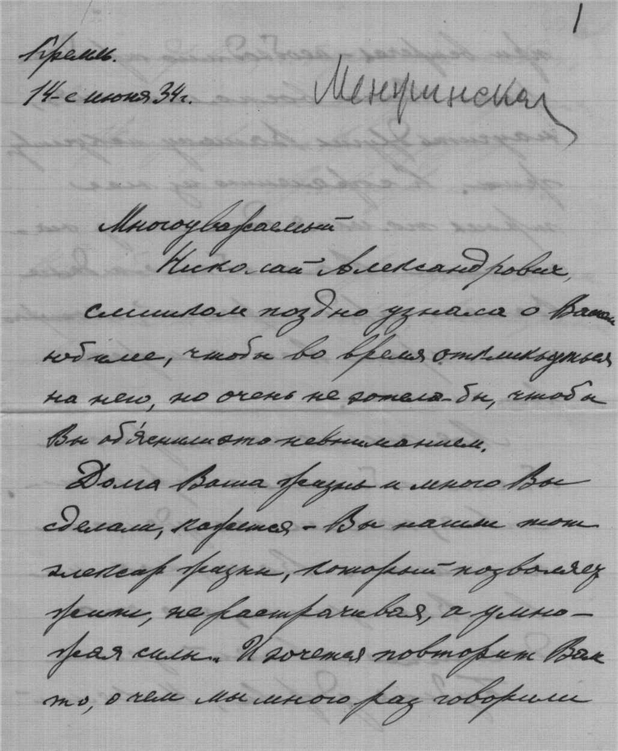 1
Кремль.
14-е июня 34г.
Менжинская
Многоуважаемый
Николай Александрович,
слишком поздно узнала о Вашем
юбилее, чтобы во время откликнуться
на него, но очень не хотела-бы, чтобы
Вы об'яснили это невниманием.
Долга Ваша жизнь и много Вы
сделали, кажется – Вы нашли тот
элексир жизни, который позволяет
жить, не растрачивая, а умно-
жая силы. И хочется повторить Вам
то, о чем мы много раз говорили